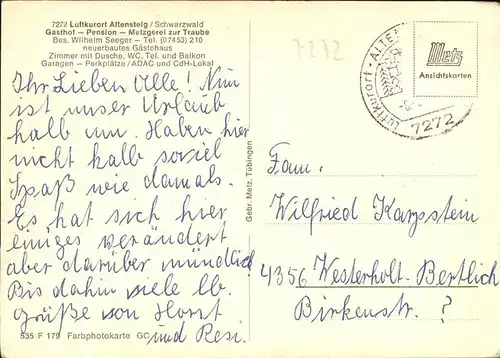 7272 Luftkurort Altensteig / Schwarzwald
Gasthof – Pension – Metzgerei zur Traube
Bes. Wilhelm Seeger – Tel. (07453) 210
neuerbautes Gästehaus
Zimmer mit Dusche, WC, Tel. und Balkon
Garagen – Parkplätze / ADAC und CdH-Lokal
Ihr Lieben Alle! Nun
ist unser Urlaub
halb um. Haben hier
nicht halb soviel
Spaß wie damals.
Es hat sich hier
einiges verändert
aber darüber mündlich
Bis dahin viele lb.
Grüße von Horst
und Resi.
535 F 179 Farbphotokarte GC
Gebr. Metz, Tübingen
7272
Luftkurort · ALTE
7272
Metz
Ansichtskarten
Fam.
Wilfried Karpstein
4356 Westerholt-Bertlich
Birkenstr. ?